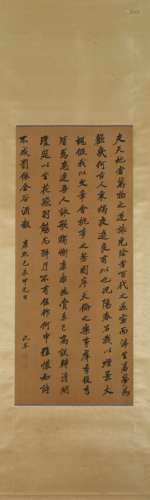 夫天地者萬物之逆旅光陰者百代之過客而浮生若夢為
歡幾何古人秉燭夜遊良有以也況陽春召我以煙景大
塊假我以文章會桃李之芳園序天倫之樂事群季俊秀
皆為惠連吾人詠歌獨慚康樂幽賞未已高談轉清開
瓊筵以坐花飛羽觴而醉月不有佳作何伸雅懷如詩
不成罰依金谷酒數